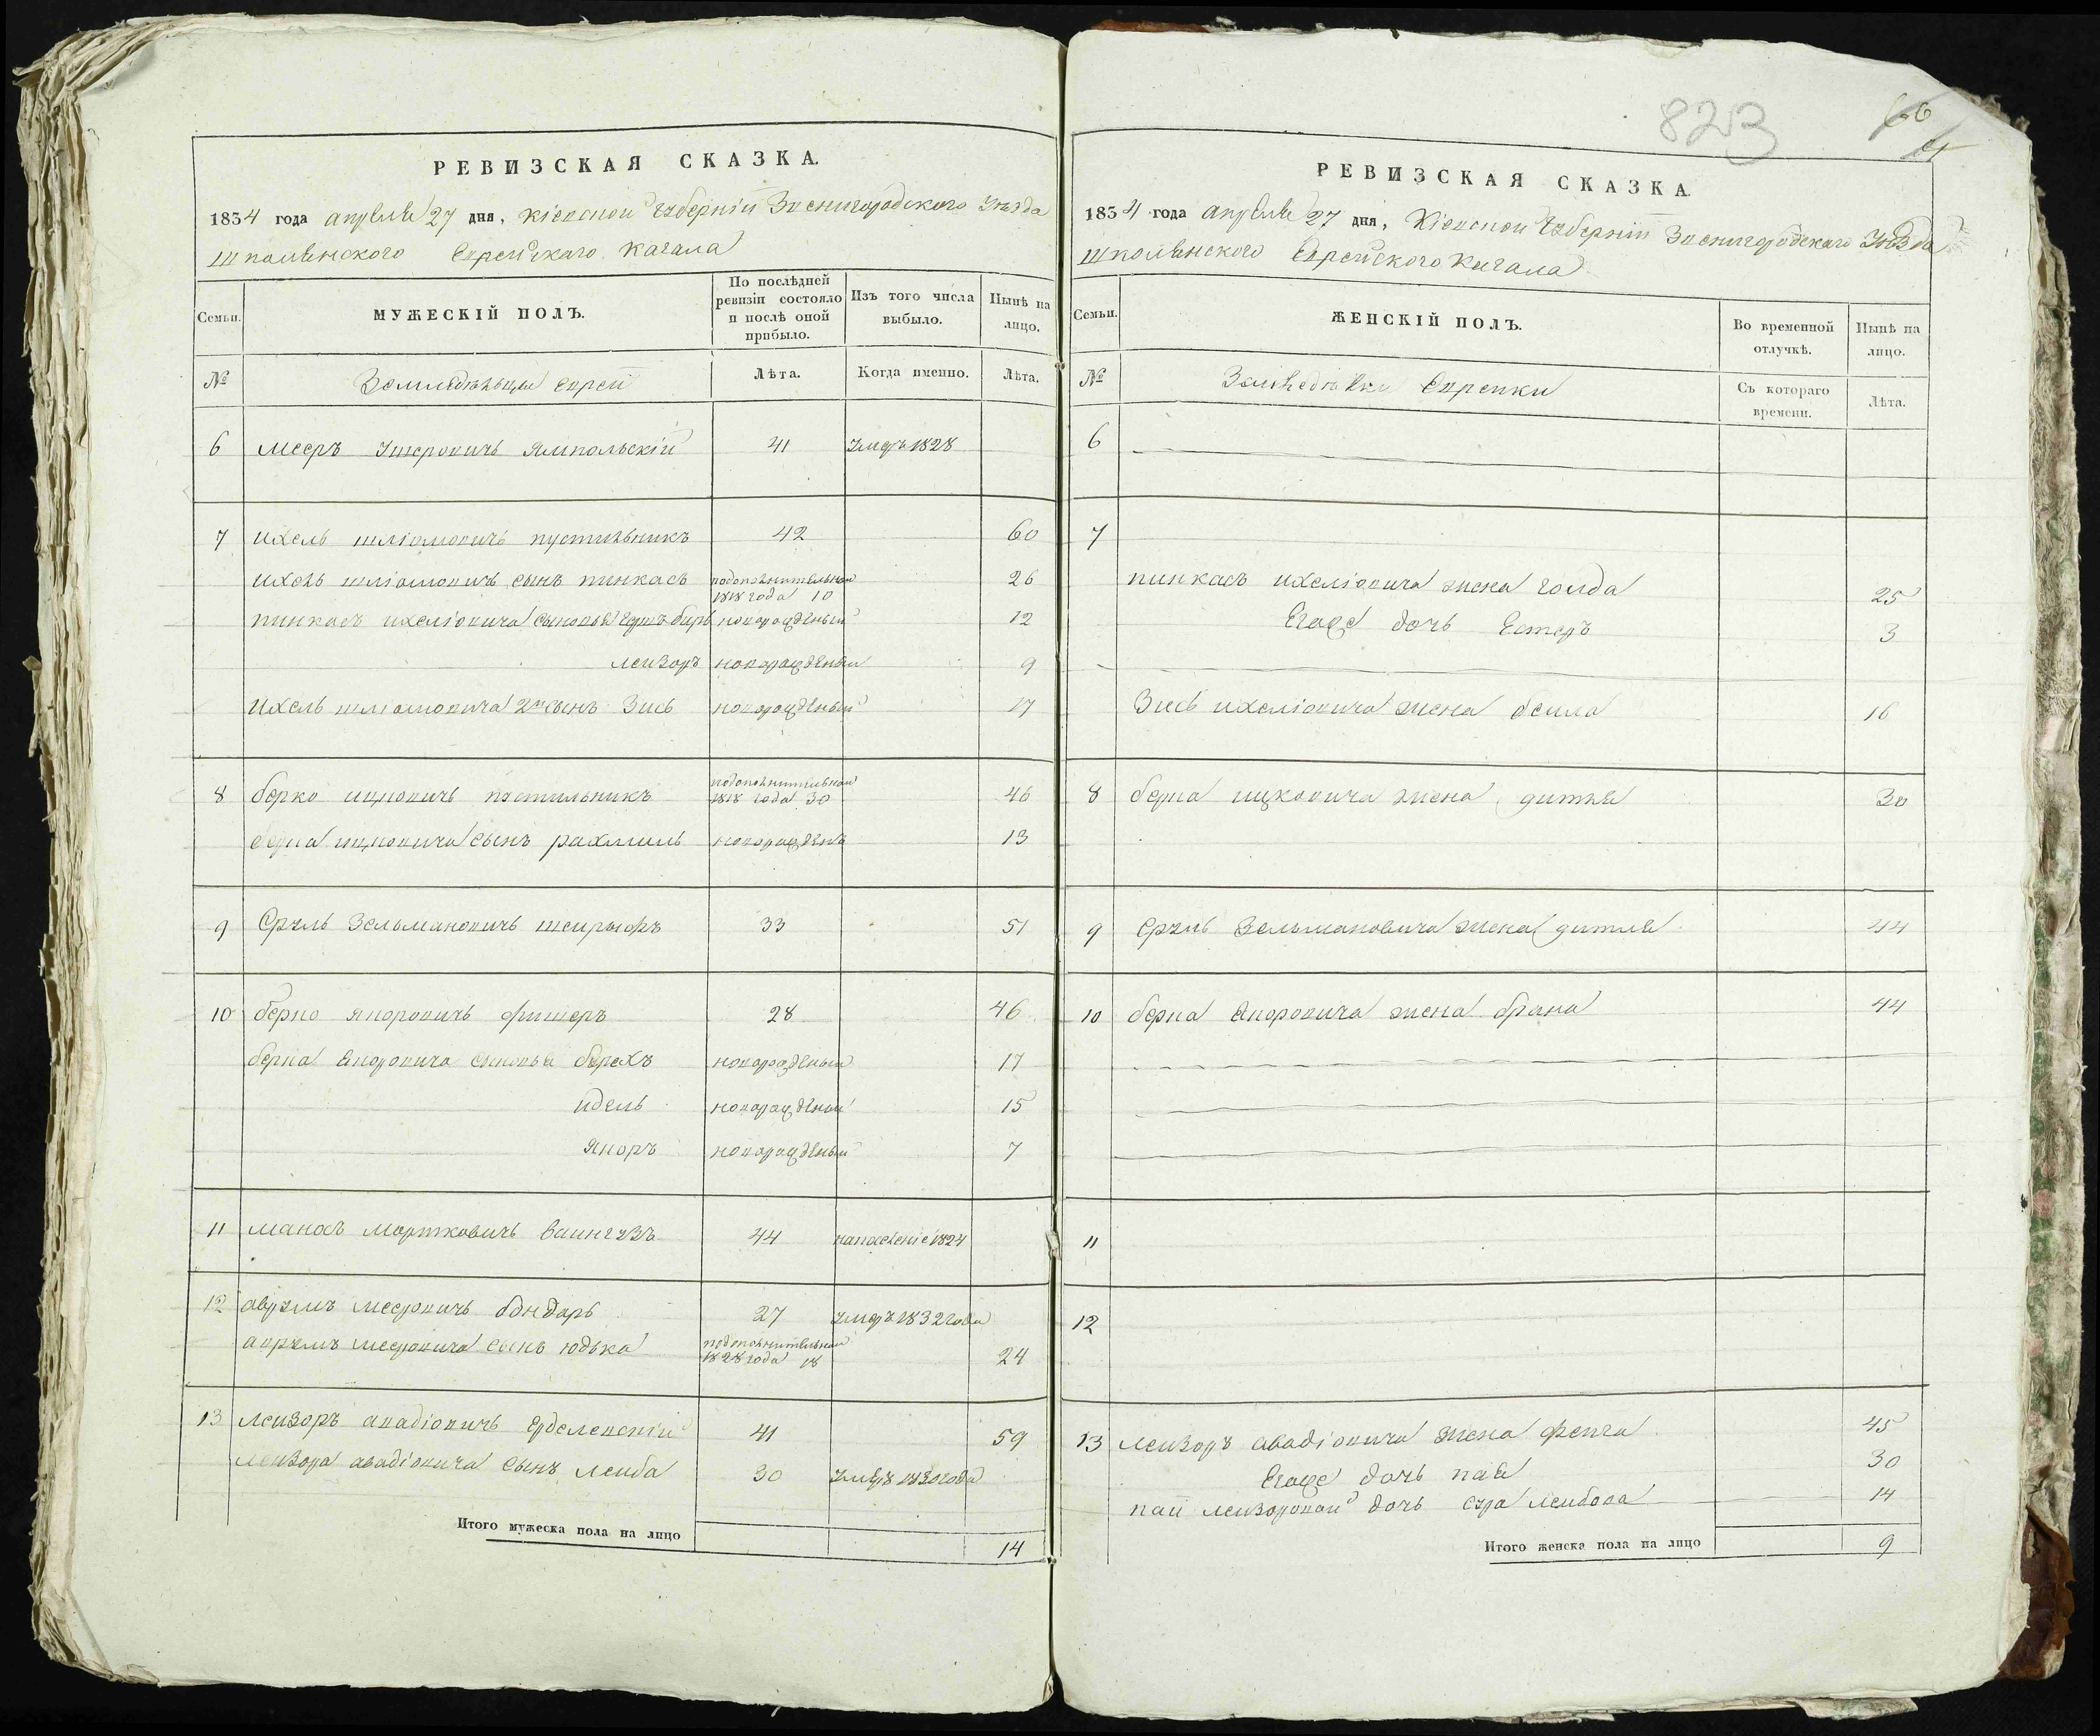 РЕВИЗСКАЯ СКАЗКА.
1834 года апреля 27 дня, Кіевской Губерніи Звенигородского Уезда
Шполянского Еврейского Кагала
Семьи.
МУЖЕСКІЙ ПОЛЪ.
По послѣдней ревизіи состояло и послѣ оной прибыло.
Изъ того числа выбыло.
Нынѣ на лицо.
№
Земледельцы евреи
Лѣта.
Когда именно.
Лѣта.
6 мееръ ушеровичъ Ямпольскій 41 умеръ 1828
7 ихель шліомовичъ пустильникъ 42 60
ихель шліомовичъ сынъ пинкасъ подополнительной 1818 года 10 26
пинкасъ ихеліовича сыновья Герш берь новорожденый 12
лейзоръ новорожденый 9
ихель шліомовича 2й сынъ Зись новорожденый 17
8 берко ицковичъ постильникъ подополнительной 1818 года 30 46
берка ицковича сынъ рахмиль новорожденъ 13
9 Сруль Зельмановичъ 33 51
10 берко янкровичъ фишеръ 28 46
берка янкровича сыновья берахъ новорожденый 17
идель новорожденый 15
янкоръ новорожденый 7
11 манасъ мортковичъ Вайнгузъ 44 1824
12 аврумъ мееровичъ бондарь 27 умеръ 1832 года
аврумъ мееровича сынъ юдька подополнительной 1828 года 18 24
13 лейзоръ авадіовичъ 41 59
лейзора авадіовича сынъ лейба 30 умеръ 1830 года
Итого мужеска пола на лицо 14
823
66
РЕВИЗСКАЯ СКАЗКА
1834 года апреля 27 дня, Кіевской Губерніи Звенигородского Уезда
Шполянского Еврейского Кагала
Семьи.
ЖЕНСКІЙ ПОЛЪ.
Во временной отлучкѣ.
Нынѣ на лицо.
№
Земледелки Еврейки
Съ котораго времени.
Лѣта.
6
7
пинкасъ ихеліовича жена голда 25
Егоже дочь Естеръ 3
Зись ихеліовича жена бейла 16
8 берка ицковича жена гитля 30
9 Сруль Зельмановича жена гитля 44
10 берка янкровича жена брана 44
11
12
13 лейзоръ авадіовича жена фейга 45
Егоже дочь пая 30
паи лейзоровой дочь сура лейбова 14
Итого женска пола на лицо 9